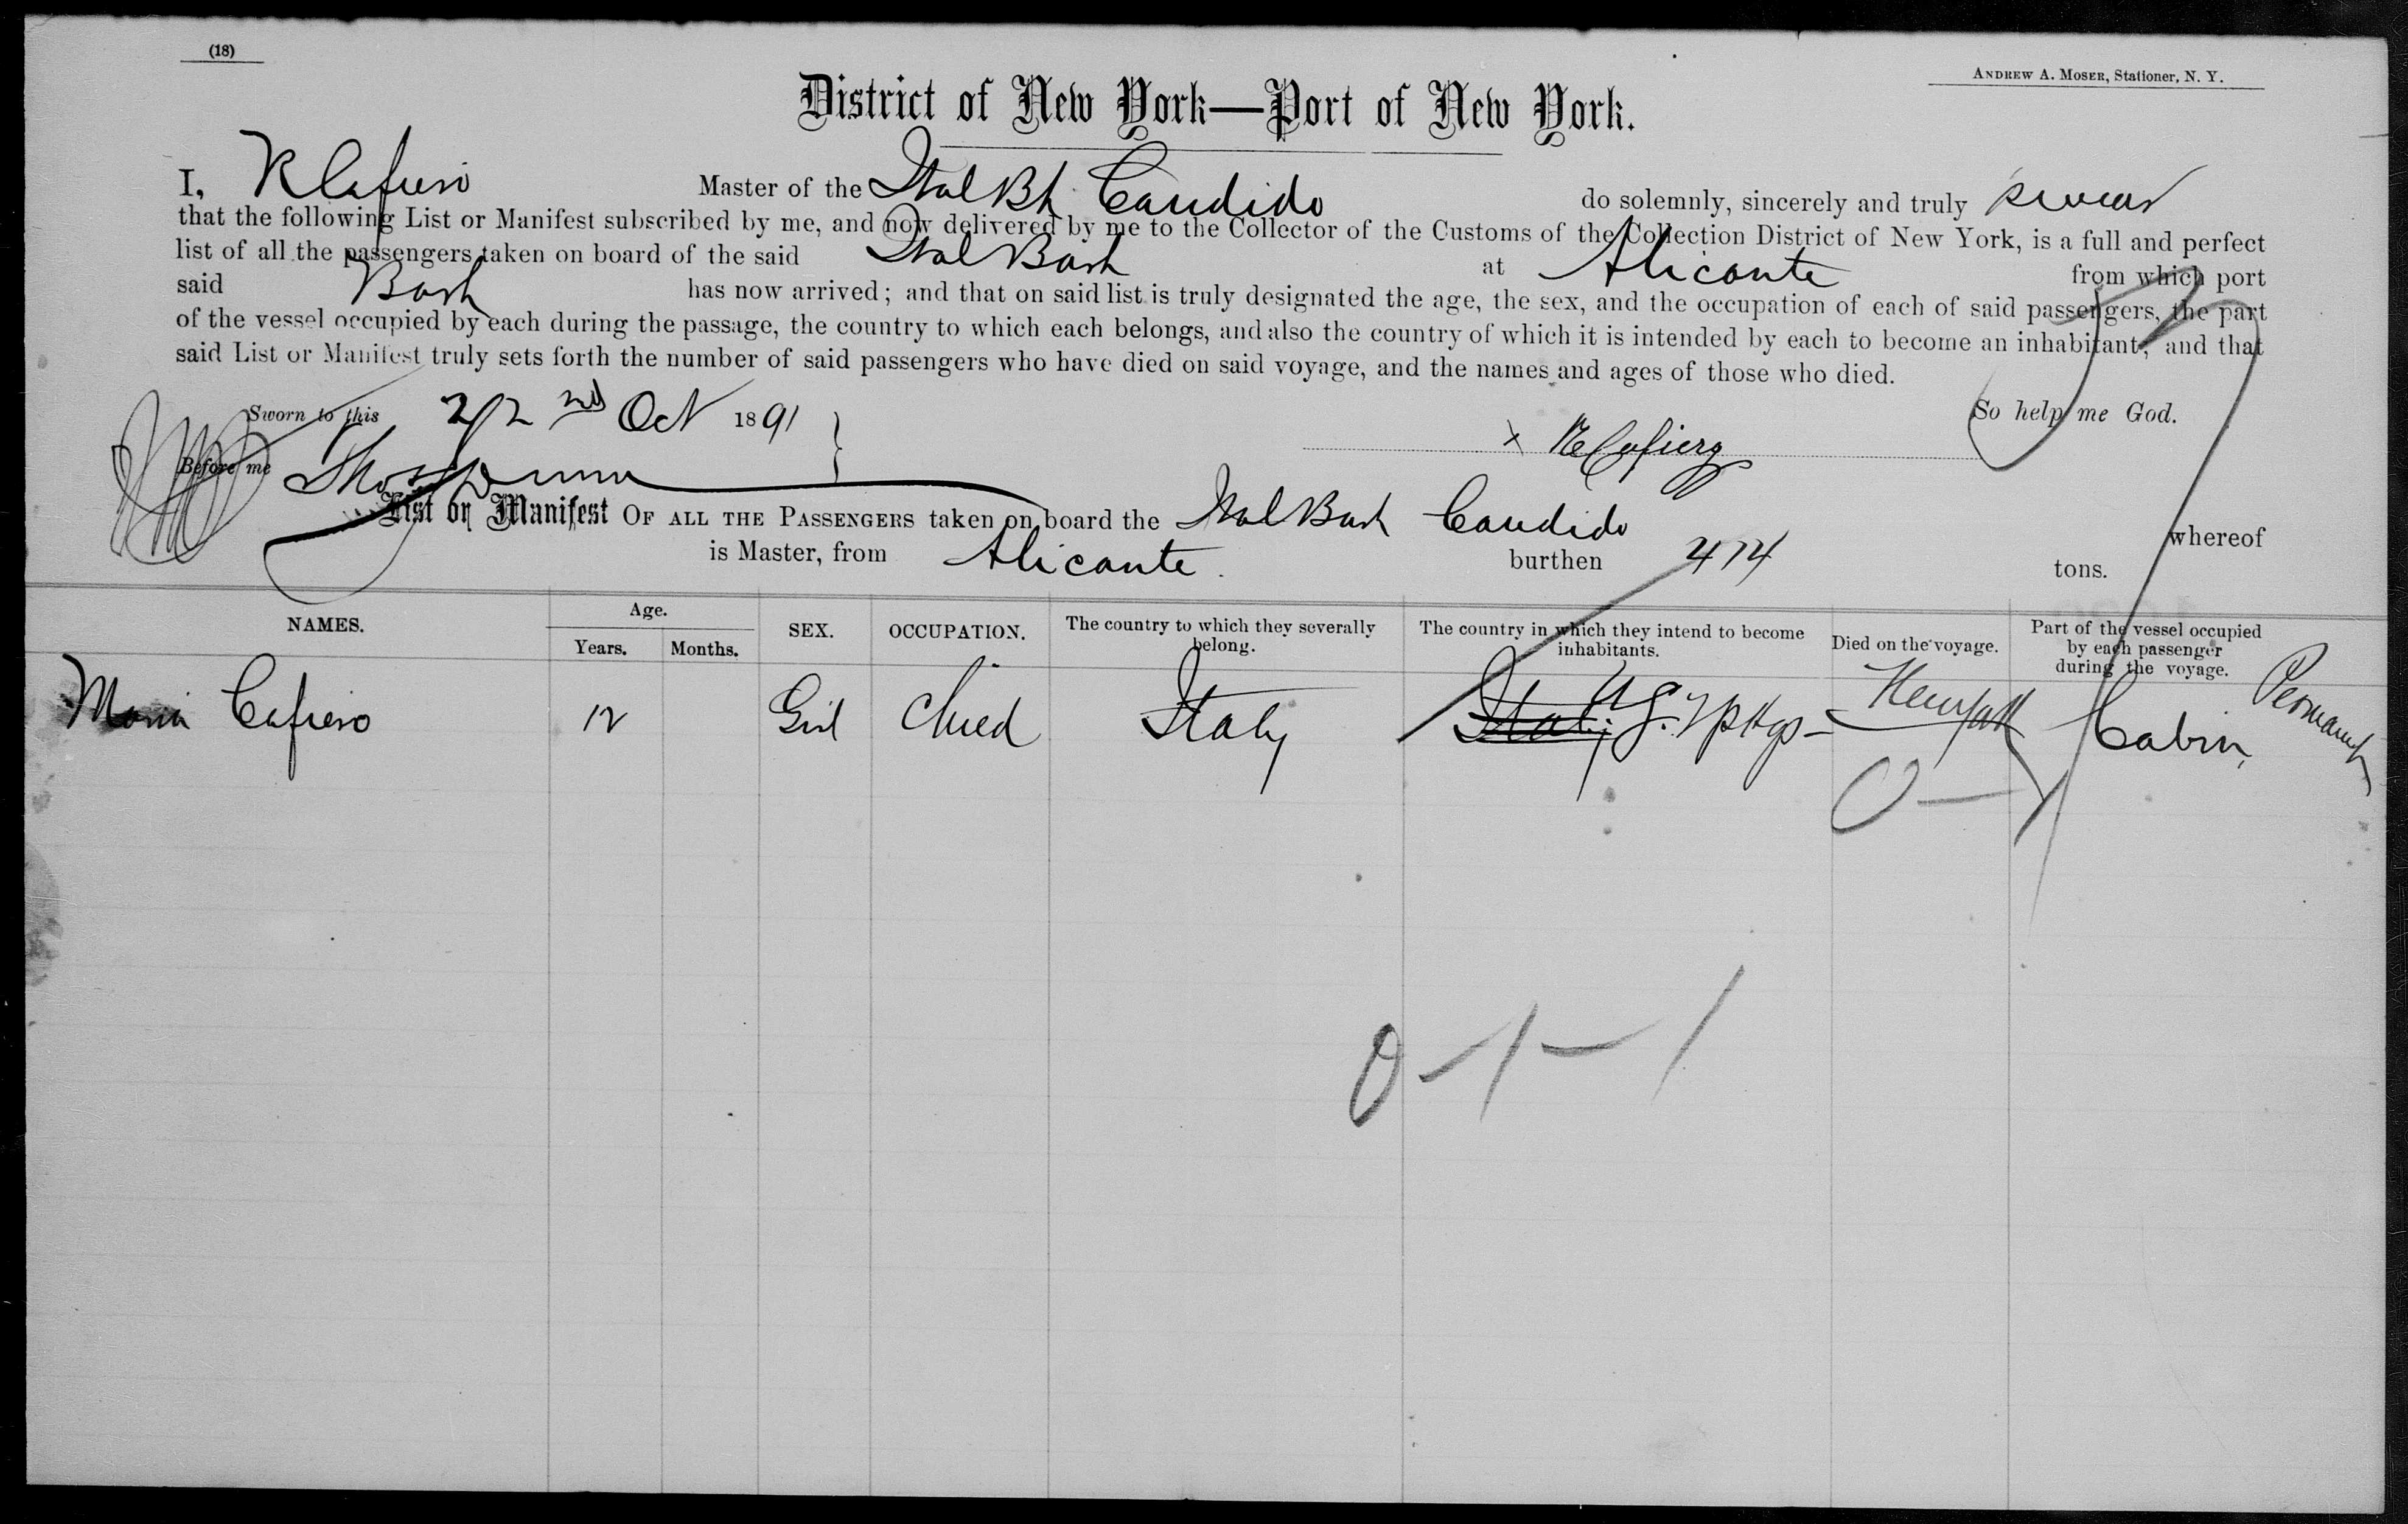 (18)
ANDREW A. MOSER, Stationer, N. Y.
District of New York—Port of New York.
I, R Cafiero Master of the Ital Bk Candido do solemnly, sincerely and truly swear
that the following List or Manifest subscribed by me, and now delivered by me to the Collector of the Customs of the Collection District of New York, is a full and perfect
list of all the passengers taken on board of the said Ital Bark at Alicante from which port
said Bark has now arrived; and that on said list is truly designated the age, the sex, and the occupation of each of said passengers, the part
of the vessel occupied by each during the passage, the country to which each belongs, and also the country of which it is intended by each to become an inhabitant; and that
said List or Manifest truly sets forth the number of said passengers who have died on said voyage, and the names and ages of those who died.
Sworn to this 22nd Oct 1891 So help me God.
x R Cafiero
Before me Thos Dunn
List or Manifest OF ALL THE PASSENGERS taken on board the Ital Bark Candido whereof
is Master, from Alicante. burthen 474 tons.
NAMES. Age. Years. Months. SEX. OCCUPATION. The country to which they severally belong. The country in which they intend to become inhabitants. Died on the voyage. Part of the vessel occupied by each passenger during the voyage.
Maria Cafiero 12 Girl Chied Italy Italy U S. pkgs- Cabin,
0 —
0 - 1 - 1